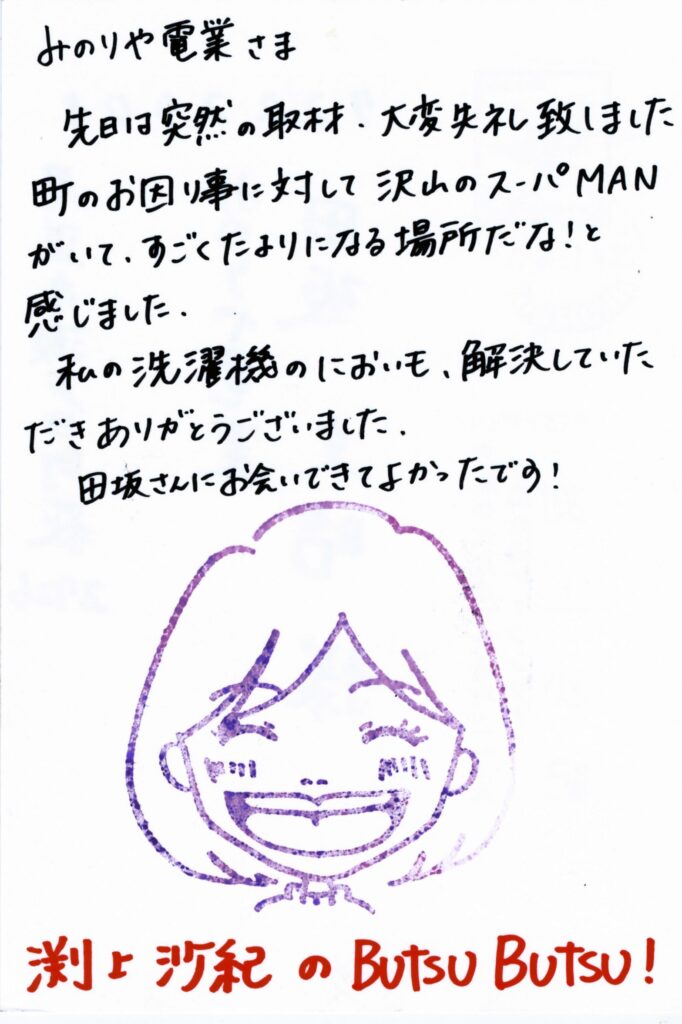 みのりや電業さま
先日は突然の取材、大変失礼致しました
町のお困り事に対して沢山のスーパMAN
がいて、すごくたよりになる場所だな!と
感じました.
私の洗濯機のにおいも、解決していた
だきありがとうございました.
田坂さんにお会いできてよかったです!
渕上沙紀のButsu Butsu!